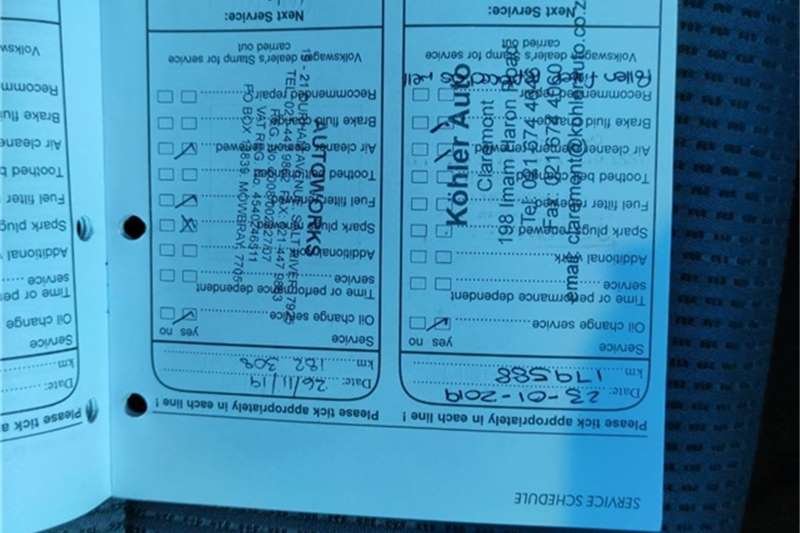 SERVICE SCHEDULE
Please tick appropriately in each line !
Date: 23-01-2019
km 179588
Service yes no
Oil change service
Time or performance dependent
service
Additional work
Spark plugs renewed
Fuel filter renewed
Toothed belt changed
Air cleaner element renewed
Brake fluid changed
Recommended repair
Pollen filter
Volkswagen dealer's Stamp for service
carried out
Next Service:
Köhler Auto
Claremont
198 Imam Haron Road
Tel: 021 674
Fax: 021 674
email: claremont@kohlerauto.co.z
Please tick appropriately in each line !
Date: 26/11/19
km 182 308
Service yes no
Oil change service
Time or performance dependent
service
Additional work
Spark plugs renewed
Fuel filter renewed
Toothed belt changed
Air cleaner element renewed
Brake fluid changed
Recommended repair
Volkswagen dealer's Stamp for service
carried out
Next Service:
AUTOWORKS
DURHAM AVENUE, SALT RIVER 7925
VAT REG No.
PO BOX MOWBRAY, 7705
Please tick a
Date:
km
Service
Oil change
Time or pe
service
Additional
Spark plug
Fuel filter
Toothed b
Air cleane
Brake fluid
Recomm
Volksw